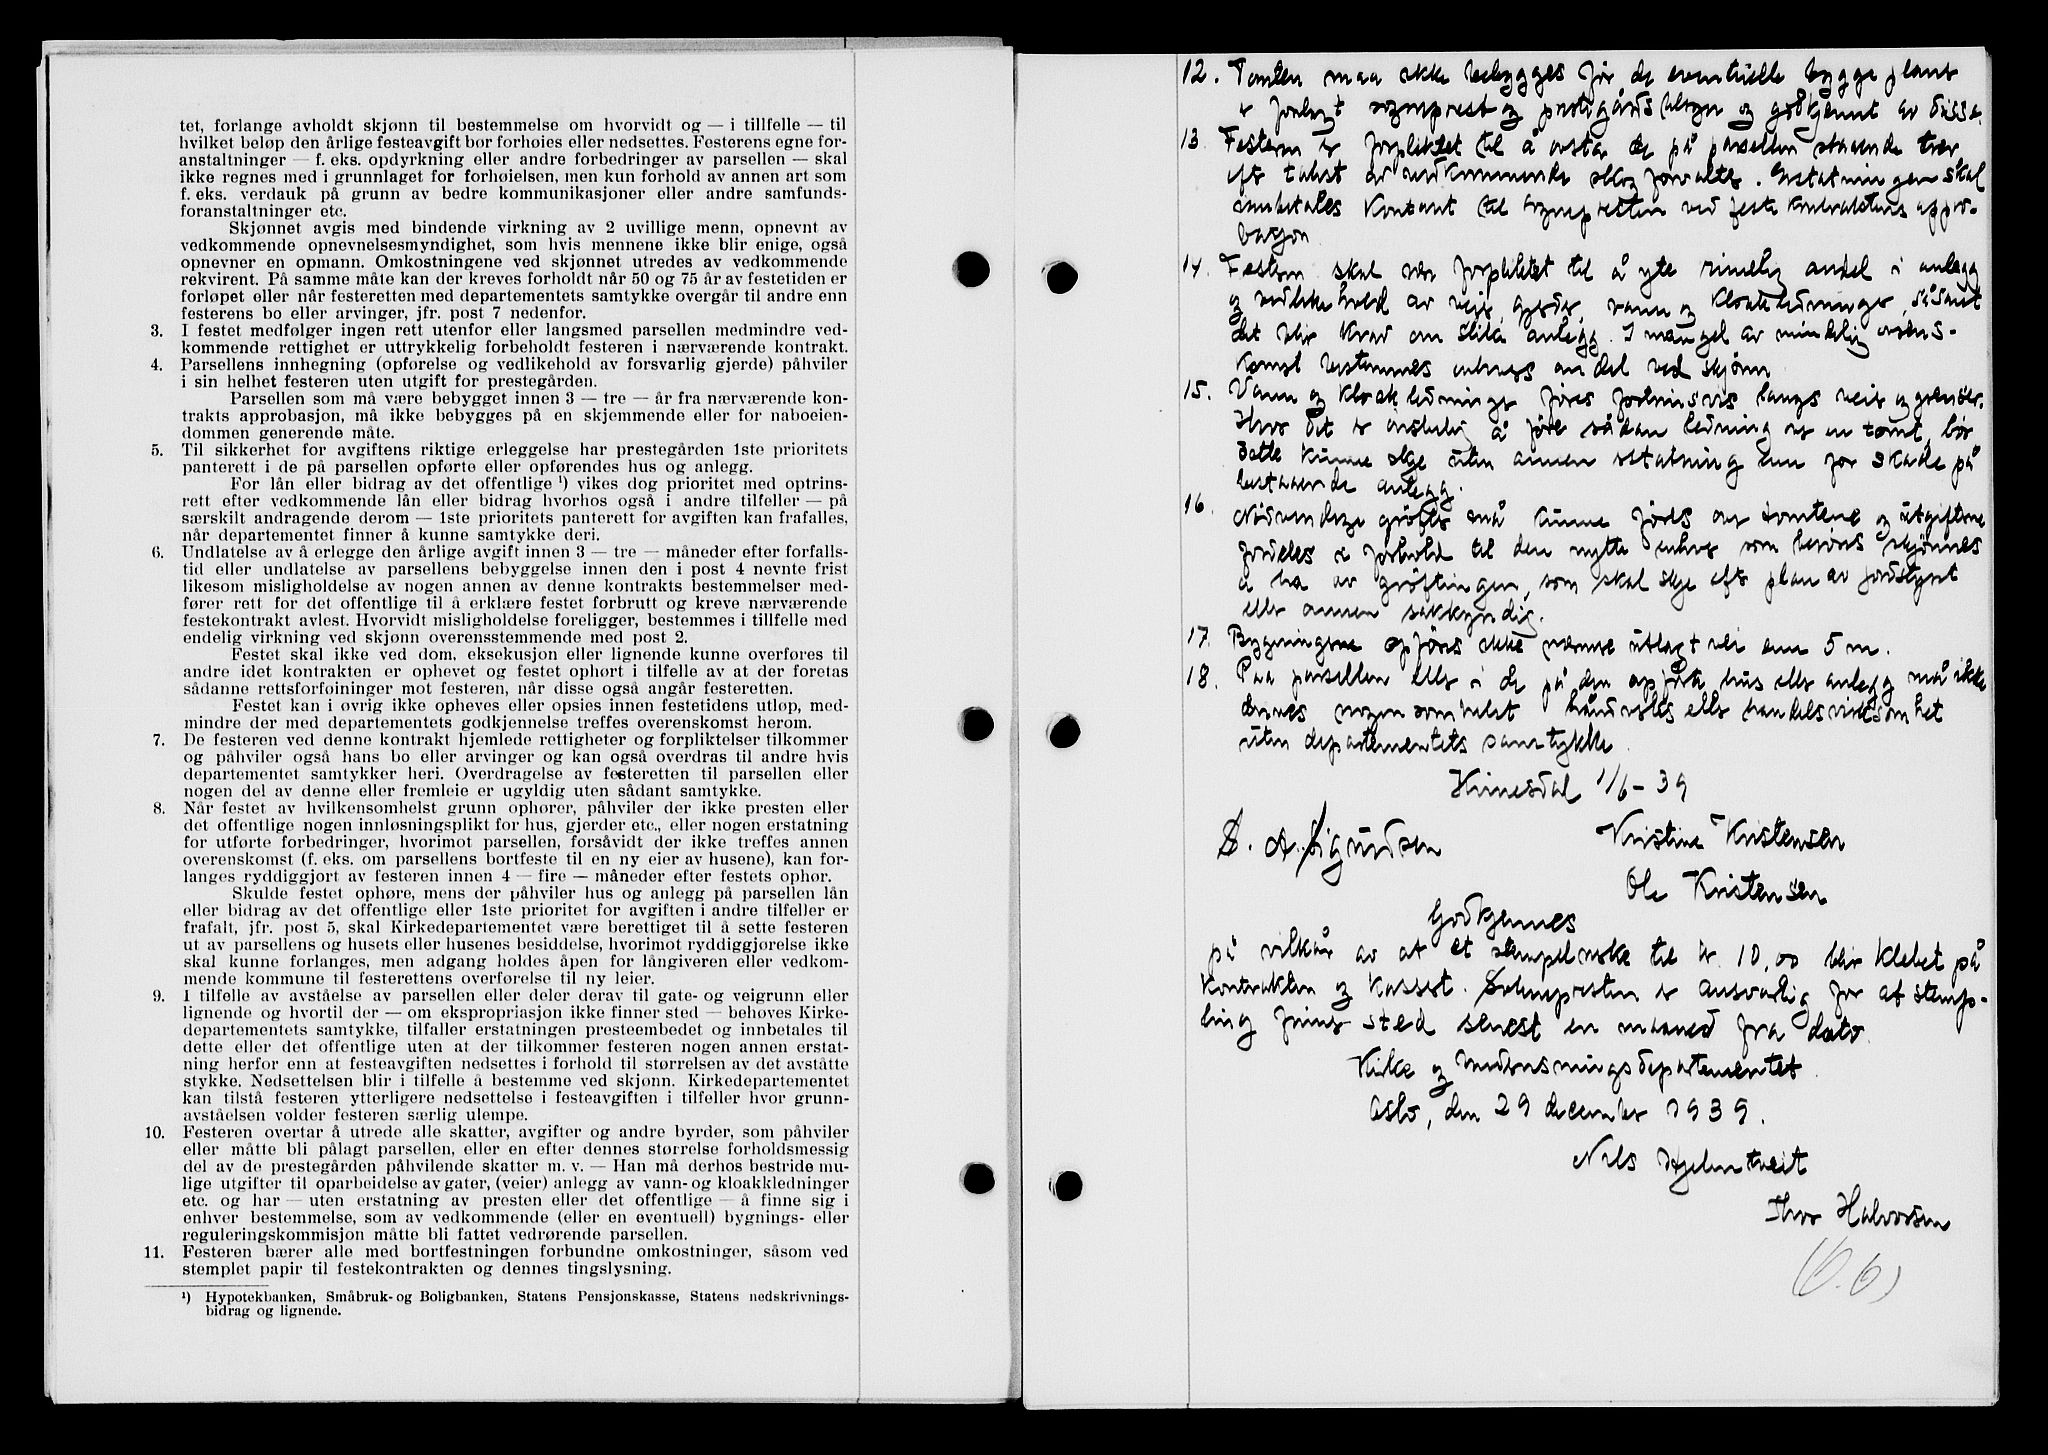 tet, forlange avholdt skjønn til bestemmelse om hvorvidt og — i tillfelle — til
hvilket beløp den årlige festeavgift bør forhøies eller nedsettes. Festerens egne for-
anstaltninger — f. eks. opdyrkning eller andre forbedringer av parsellen — skal
ikke regnes med i grunnlaget for forhøielsen, men kun forhold av annen art som
f. eks. verdauk på grunn av bedre kommunikasjoner eller andre samfunds-
foranstaltninger etc.
Skjønnet avgis med bindende virkning av 2 uvillige menn, opnevnt av
vedkommende opnevnelsesmyndighet, som hvis mennene ikke blir enige, også
opnevner en opmann. Omkostningene ved skjønnet utredes av vedkommende
rekvirent. På samme måte kan der kreves forholdt når 50 og 75 år av festetiden er
forløpet eller når festeretten med departementets samtykke overgår til andre enn
festerens bo eller arvinger, jfr. post 7 nedenfor.
3. I festet medfølger ingen rett utenfor eller langsmed parsellen medmindre ved-
kommende rettighet er uttrykkelig forbeholdt festeren i nærværende kontrakt.
4. Parsellens innhegning (opførelse og vedlikehold av forsvarlig gjerde) påhviler
i sin helhet festeren uten utgift for prestegården.
Parsellen som må være bebygget innen 3 — tre — år fra nærværende kon-
trakts approbasjon, må ikke bebygges på en skjemmende eller for naboeien-
dommen generende måte.
5. Til sikkerhet for avgiftens riktige erleggelse har prestegården 1ste prioritets
panterett i de på parsellen opførte eller opførendes hus og anlegg.
For lån eller bidrag av det offentlige ¹) vikes dog prioritet med optrins-
rett efter vedkommende lån eller bidrag hvorhos også i andre tilfeller — på
særskilt andragende derom — 1ste prioritets panterett for avgiften kan frafalles,
når departementet finner å kunne samtykke deri.
6. Undlatelse av å erlegge den årlige avgift innen 3 — tre — måneder efter forfalls-
tid eller undlatelse av parsellens bebyggelse innen den i post 4 nevnte frist
likesom misligholdelse av nogen annen av denne kontrakts bestemmelser med-
fører rett for det offentlige til å erklære festet forbrutt og kreve nærværende
festekontrakt avlest. Hvorvidt misligholdelse foreligger, bestemmes i tilfelle med
endelig virkning ved skjønn overensstemmende med post 2.
Festet skal ikke ved dom, eksekusjon eller lignende kunne overføres til
andre idet kontrakten er ophevet og festet ophørt i tilfelle av at der foretas
sådanne rettsforføininger mot festeren, når disse også angår festeretten.
Festet kan i øvrig ikke opheves eller opsies innen festetidens utløp, med-
mindre der med departementets godkjennelse treffes overenskomst herom.
7. De festeren ved denne kontrakt hjemlede rettigheter og forpliktelser tilkommer
og påhviler også hans bo eller arvinger og kan også overdras til andre hvis
departementet samtykker heri. Overdragelse av festeretten til parsellen eller
nogen del av denne eller fremleie er ugyldig uten sådant samtykke.
8. Når festet av hvilkensomhelst grunn ophører, påhviler der ikke presten eller
det offentlige nogen innløsningsplikt for hus, gjerder etc., eller nogen erstatning
for utførte forbedringer, hvorimot parsellen, forsåvidt der ikke treffes annen
overenskomst (f. eks. om parsellens bortfeste til en ny eier av husene), kan for-
langes ryddiggjort av festeren innen 4 — fire — måneder efter festets ophør.
Skulde festet ophøre, mens der påhviler hus og anlegg på parsellen lån
eller bidrag av det offentlige eller 1ste prioritet for avgiften i andre tilfeller er
frafalt, jfr. post 5, skal Kirkedepartementet være berettiget til å sette festeren
ut av parsellens og husets eller husenes besiddelse, hvorimot ryddiggjørelse ikke
skal kunne forlanges, men adgang holdes åpen for långiveren eller vedkom-
mende kommune til festerettens overførelse til ny leier.
9. I tilfelle av avståelse av parsellen eller deler derav til gate- og veigrunn eller
lignende og hvortil der — om ekspropriasjon ikke finner sted — behøves Kirke-
departementets samtykke, tilfaller erstatningen presteembedet og innbetales til
dette eller det offentlige uten at der tilkommer festeren nogen annen erstat-
ning herfor enn at festeavgiften nedsettes i forhold til størrelsen av det avståtte
stykke. Nedsettelsen blir i tilfelle å bestemme ved skjønn. Kirkedepartementet
kan tilstå festeren ytterligere nedsettelse i festeavgiften i tilfeller hvor grunn-
avståelsen volder festeren særlig ulempe.
10. Festeren overtar å utrede alle skatter, avgifter og andre byrder, som påhviler
eller måtte bli pålagt parsellen, eller en efter dennes størrelse forholdsmessig
del av de prestegården påhvilende skatter m. v. — Han må derhos bestride mu-
lige utgifter til oparbeidelse av gater, (veier) anlegg av vann- og kloakkledninger
etc. og har — uten erstatning av presten eller det offentlige — å finne sig i
enhver bestemmelse, som av vedkommende (eller en eventuell) bygnings- eller
reguleringskommisjon måtte bli fattet vedrørende parsellen.
11. Festeren bærer alle med bortfestningen forbundne omkostninger, såsom ved
stemplet papir til festekontrakten og dennes tingslysning.
¹) Hypotekbanken, Småbruk- og Boligbanken, Statens Pensjonskasse, Statens nedskrivnings-
bidrag og lignende.
12. Tomten maa ikke bebygges før de eventuelle bygge planer
er forlagt sogneprest og prestegårds tilsyn og godkjennt av disse.
13. Festeren er forpliktet til å avstå de på parsellen staaende trær
eft takst av vedkommende skog forvalter. Erstatningen skal
innbetales kontant til sognepresten ved feste kontraktens appro-
basjon
14. Festeren skal være forpliktet til å yte rimelig andel i anlegg
og vedlikehold av veier, gjerder, vann og kloakkledninger, såsant
det blir krav om slike anlegg. I mangel av mindelig overens-
komst bestemmes enhvers andel ved skjønn
15. Vann og kloakkledninger føres fortrinsvis langs veier og grenser.
Hvor det er ønskelig å føre sådan ledning over en tomt, bør
dette kunne skje uten annen erstatning enn for skade på
bestaaende anlegg.
16. Nødvendige grøfter må kunne føres over tomtene og utgiftene
fordeles i forhold til den nytte enhver som berøres skjønnes
å ha av grøftingen, som skal skje efter plan av jordstyret
eller annen sakkyndig.
17. Bygningene opføres ikke nærmere utlagt vei enn 5 m.
18. Paa parsellen eller i de på den opførte hus eller anlegg må ikke
drives nogensomhelst håndverks eller handelsvirksomhet
uten departementets samtykke.
Kvinesdal 1/6 - 39
S. A. Sigurdsen Kristine Kristensen
Ole Kristensen
Godkjennes
på vilkår av at et stempelmerke til kr. 10,00 blir klebet på
kontrakten og kassert. Sognepresten er ansvarlig for at stemp-
ling finner sted senest en maaned fra dato.
Kirke og Undervisningsdepartementet
Oslo, den 29 december 1939.
Nils Hjelmtveit
Thor Halvorsen